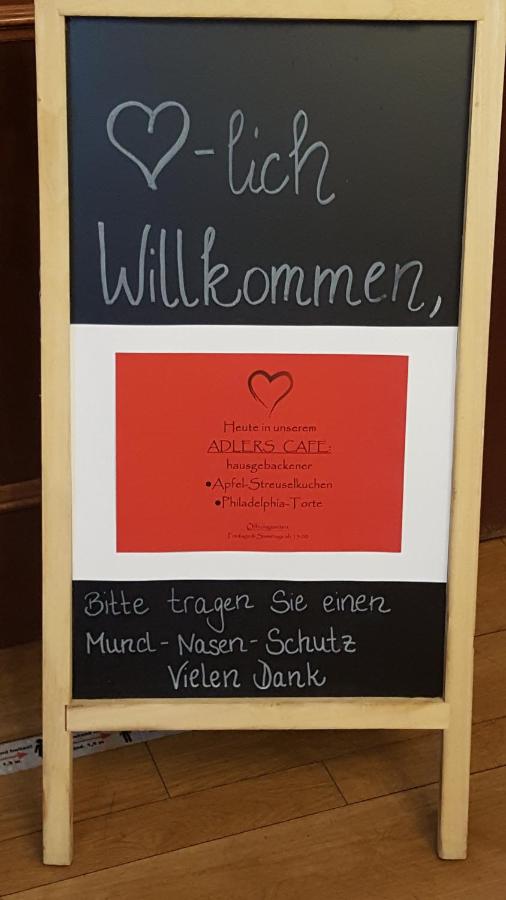 ♡-lich
Willkommen,
Heute in unserem
ADLERS CAFE:
hausgebackener
●Apfel-Streuselkuchen
●Philadelphia-Torte
Öffnungszeiten
Bitte tragen Sie einen
Mund-Nasen-Schutz
Vielen Dank
1,5 m